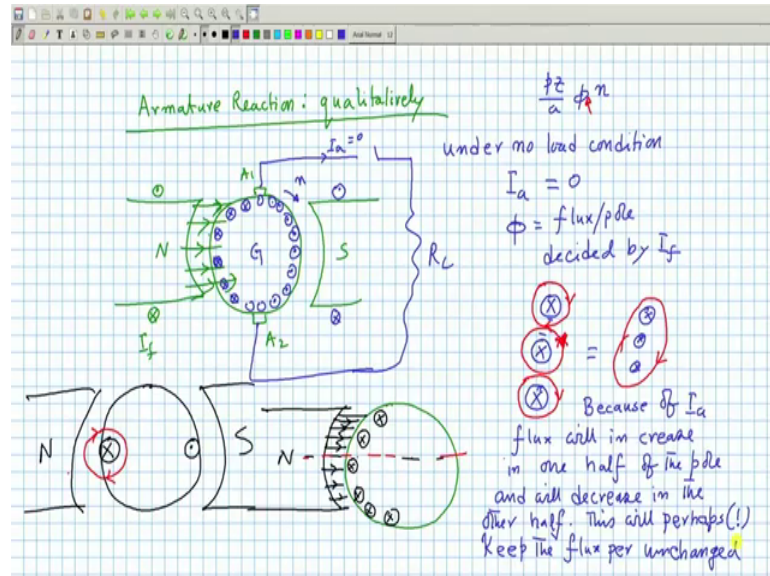 Armature Reaction: qualitatively
pz/a ϕ n
under no load condition
Ia = 0
ϕ = flux/pole
decided by If
Ia=0
A1
n
N
G
S
RL
A2
If
=
Because of Ia
flux will in crease
in one half of The pole
and will decrease in The
other half. This will perhaps(!)
Keep The flux per unchanged
N
S
N
Arial Normal 12